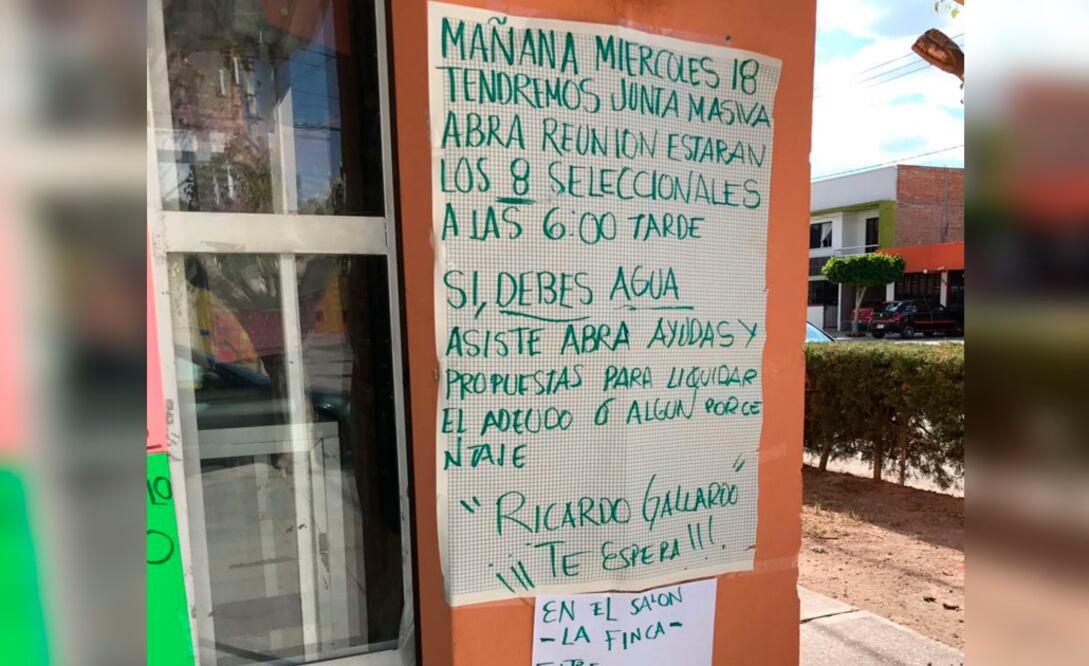 MAÑANA MIERCOLES 18
TENDREMOS JUNTA MASIVA
ABRA REUNION ESTARAN
LOS 8 SELECCIONALES
A LAS 6:00 TARDE
SI, DEBES AGUA
ASISTE ABRA AYUDAS Y
PROPUESTAS PARA LIQUIDAR
EL ADEUDO Ó ALGUN PORCE
NTAJE
"RICARDO GALLARDO"
¡¡¡TE ESPERA!!!.
EN EL SALON
- LA FINCA -
10
O